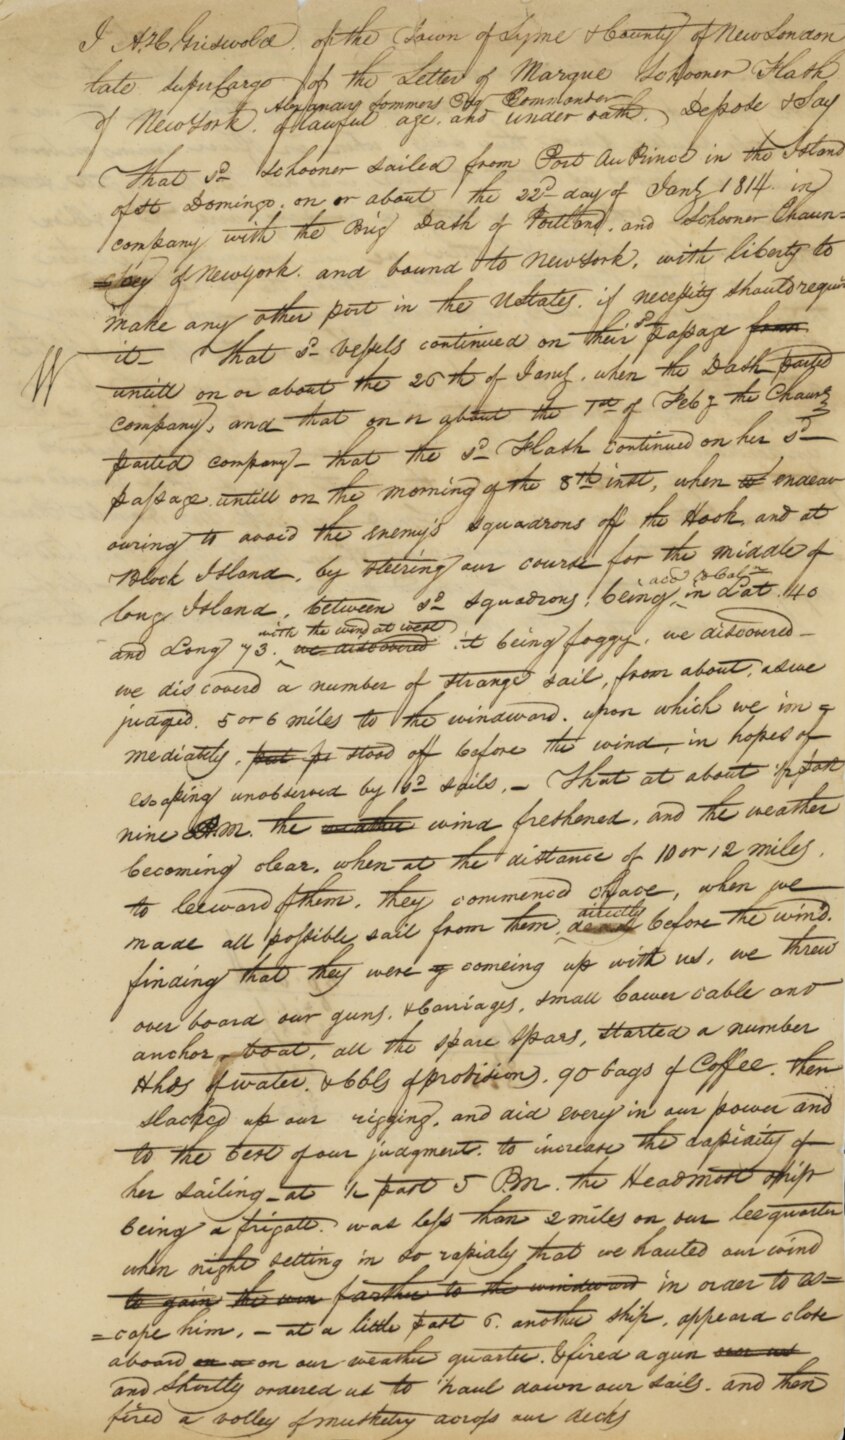 I A.H. Griswold of the Town of Lyme & County of New London
late Supercargo of the Letter of Marque Schooner Flash
Commander
of New York. of lawful age, and under oath, Depose & Say
That sd schooner sailed from Port Au Prince in the Island
of St Domingo, on or about the 22d day of Jany 1814 in
company with the Brig Dash of Portland, and Schooner Chaun=
=cey of New York, and bound to New York, with liberty to
make any other port in the UStates, if necessity should require
it – That sd vessels continued on their sd passage from
W
untill on or about the 26th of Jany, when the Dash parted
company, and that on or about the 1st of Feby the Chauny
parted company – that the sd Flash continued on her sd
passage, untill on the morning of the 8th inst, when endeav
ouring to avoid the enemy's squadrons off the Hook, and at
Block Island, by steering our course for the middle of
long Island, between sd squadrons; being in Lat. 40
with the wind at west
and Long 73. we discovered it being foggy, we discovered –
we discoverd a number of strange sail, from about, as we
judged 5 or 6 miles to the windward, upon which we im=
mediately, put stood off before the wind, in hopes of
escaping unobserved by sd sails, – That at about ½ past
nine A.M. the weather wind freshened, and the weather
becoming clear, when at the distance of 10 or 12 miles,
to leeward of them, they commencd chace, when we
directly
made all possible sail from them, before the wind.
finding that they were comeing up with us, we threw
over board our guns, & carriages, small bower cable and
anchor, boat, all the spare spars, started a number
Hhds of water, & bbls of provision, 90 bags of Coffee. then
slacked up our rigging, and did every in our power and
to the best of our judgment, to increase the rapidity of
her sailing – at ½ past 5 P.M. the Headmost ship
being a frigate, was less than 2 miles on our lee quarter
when night setting in so rapidly that we hauled our wind
to gain the farther to the windward in order to es=
=cape him, – at a little past 6. another ship, appeard close
aboard on our weather quarter, & fired a gun over us
and shortly ordered us to haul down our sails, and then
fired a volley of musketry across our decks